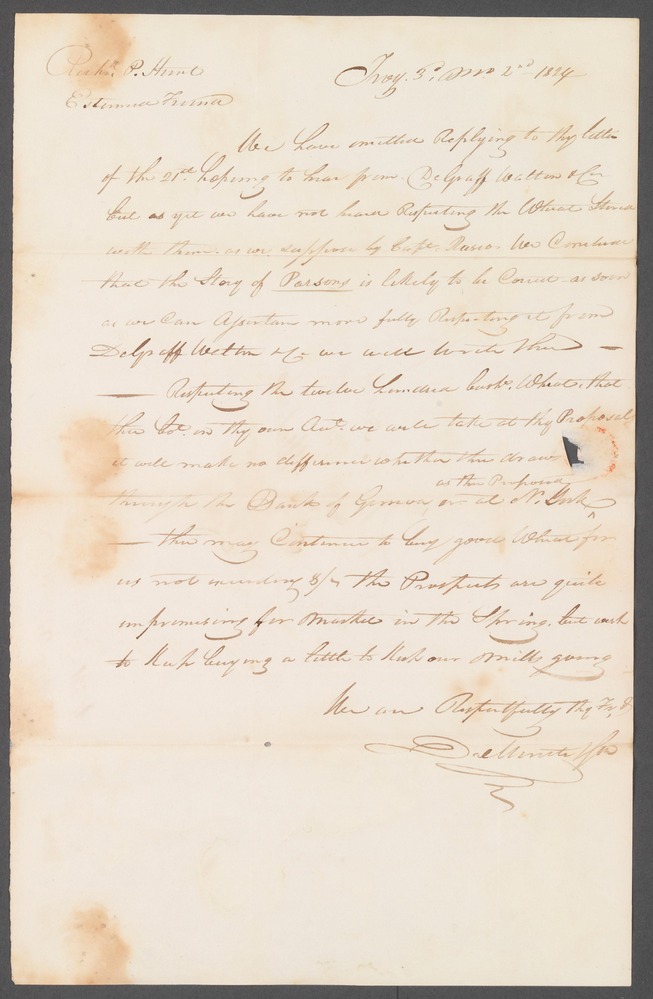 Rich.d P. Hunt
Troy. 3.d Mo 2nd 1834
Esteemed Friend
We have omitted Replying to thy letter
of the 21st hoping to hear from DeGraff Walton & Co
but as yet we have not heard Respecting the Wheat Stored
with them as we suppose by Capt. We Conclude
that the Story of Parsons is likely to be Correct as soon
as we Can Ascertain more fully Respecting it from
DeGraff Walton & Co we will write thee —
— Respecting the twelve hundred bush. Wheat that
thee on thy own Act. we will take at thy Proposal
it will make no difference whether thee draw
as thee Proposed
through the Bank of Geneva, or at N. York
— thee may Continue to buy good Wheat for
us not exceeding 8/- the Prospects are quite
unpromising for Market in the Spring. but wish
to Keep buying a little to Keep our Mills going
We are Respectfully thy Fr.ds